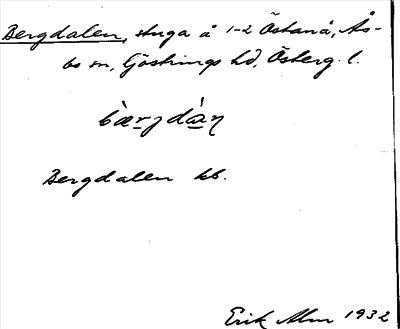 Bergdalen, stuga å 1-2 Östanå, Ås-
bo sn, Göstrings hd, Österg. l.
bærjdàn
Bergdalen kb.
Erik Alm 1932